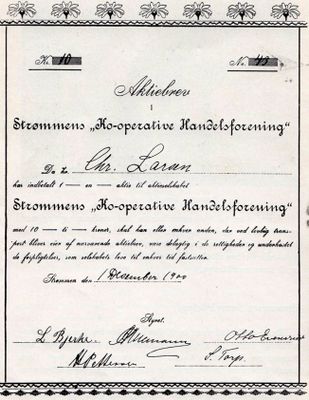 Kr. 10 No. 45
Aktiebrev
i
Strømmens „Ko-operative Handelsforening"
Da Chr. Laran
har indbetalt 1 — en — aktie til aktieselskabet
Strømmens „Ko-operative Handelsforening"
med 10 — ti — kroner, skal han eller enhver anden, der ved lovlig trans-
port bliver eier af nærværende aktiebrev, være delagtig i de rettigheder og underkastet
de forpligtelser, som selskabets love til enhver tid fastsætter.
Strømmen den 1 December 1900
Styret.
L Bjerke. Otto
S. Torp.